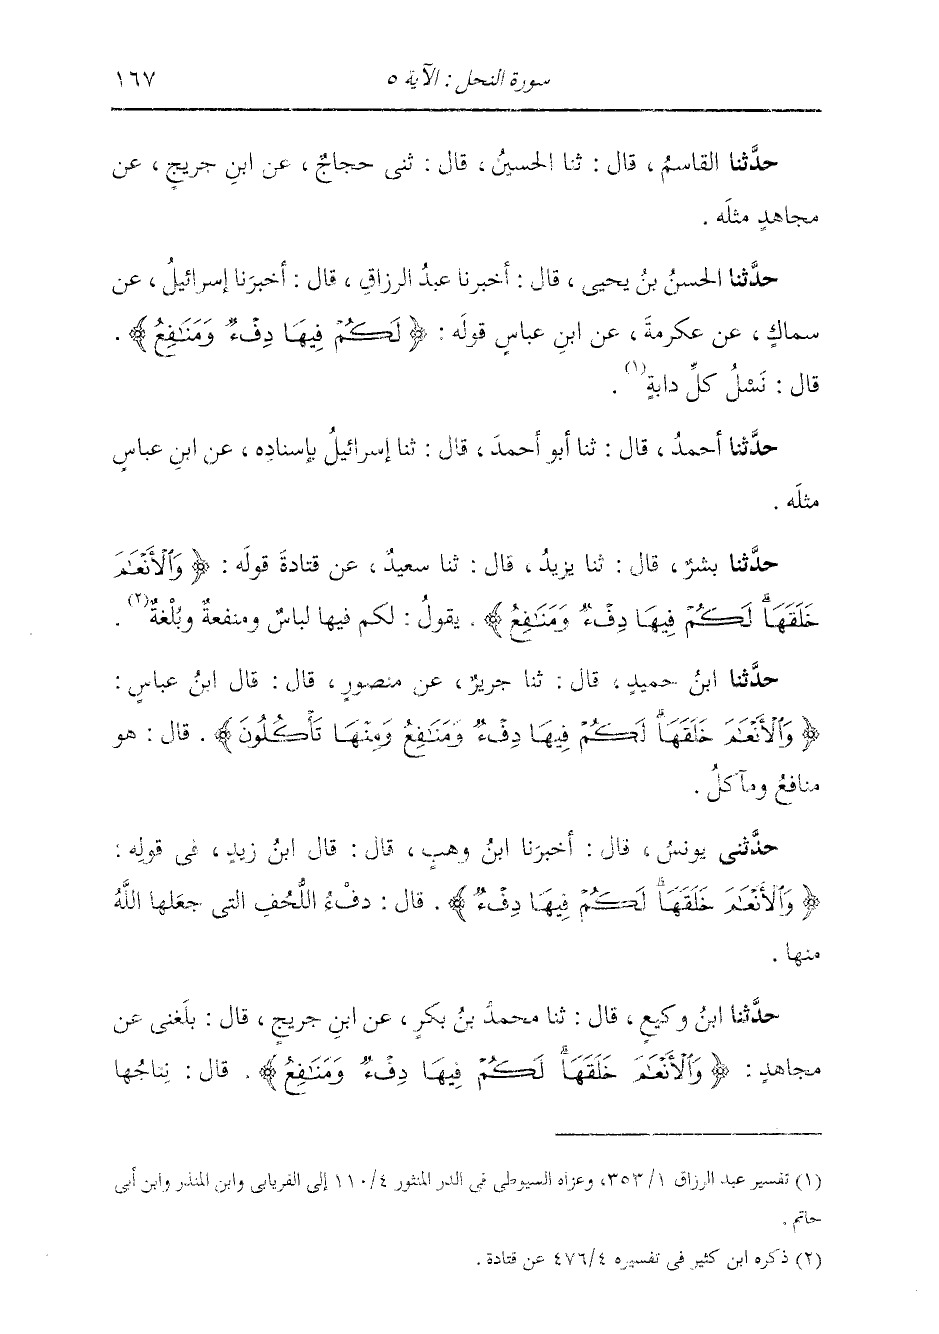 سورة النحل : الآية ٥
١٦٧
حدَّثنا القاسمُ ، قال : ثنا الحسينُ ، قال : ثنى حجاجٌ ، عن ابنِ جريجٍ ، عن
مجاهدٍ مثلَه .
حدَّثنا الحسنُ بنُ يحيى ، قال : أخبرنا عبدُ الرزاقِ ، قال : أخبرَنا إسرائيلُ ، عن
سماكٍ ، عن عكرمةَ ، عن ابنِ عباسٍ قولَه : ﴿ لَكُمْ فِيهَا دِفْءٌ وَمَنَافِعُ ﴾ .
قال : نَسْلُ كلِّ دابةٍ(١) .
حدَّثنا أحمدُ ، قال : ثنا أبو أحمدَ ، قال : ثنا إسرائيلُ بإسنادِه ، عن ابنِ عباسٍ
مثلَه .
حدَّثنا بشرٌ ، قال : ثنا يزيدُ ، قال : ثنا سعيدٌ ، عن قتادةَ قولَه : ﴿ وَٱلْأَنْعَٰمَ
خَلَقَهَاۗ لَكُمْ فِيهَا دِفْءٌ وَمَنَٰفِعُ ﴾ . يقولُ : لكم فيها لباسٌ ومنفعةٌ وبُلْغةٌ(٢) .
حدَّثنا ابنُ حميدٍ ، قال : ثنا جريرٌ ، عن منصورٍ ، قال : قال ابنُ عباسٍ :
﴿ وَٱلْأَنْعَٰمَ خَلَقَهَاۗ لَكُمْ فِيهَا دِفْءٌ وَمَنَٰفِعُ وَمِنْهَا تَأْكُلُونَ ﴾ . قال : هو
منافعُ ومآكلُ .
حدَّثنى يونسُ ، قال : أخبرَنا ابنُ وهبٍ ، قال : قال ابنُ زيدٍ ، فى قولِه :
﴿ وَٱلْأَنْعَٰمَ خَلَقَهَاۗ لَكُمْ فِيهَا دِفْءٌ ﴾ . قال : دفْءُ اللُّحُفِ التى جعَلها اللَّهُ
منها .
حدَّثنا ابنُ وكيعٍ ، قال : ثنا محمدُ بنُ بكرٍ ، عن ابنِ جريجٍ ، قال : بلَغنى عن
مجاهدٍ : ﴿ وَٱلْأَنْعَٰمَ خَلَقَهَاۗ لَكُمْ فِيهَا دِفْءٌ وَمَنَٰفِعُ ﴾ . قال : نِتاجُها
(١) تفسير عبد الرزاق ١/ ٣٥٣، وعزاه السيوطى فى الدر المنثور ٤/ ١١٠ إلى الفريابى وابن المنذر وابن أبى
حاتم .
(٢) ذكره ابن كثير فى تفسيره ٤/ ٤٧٦ عن قتادة .